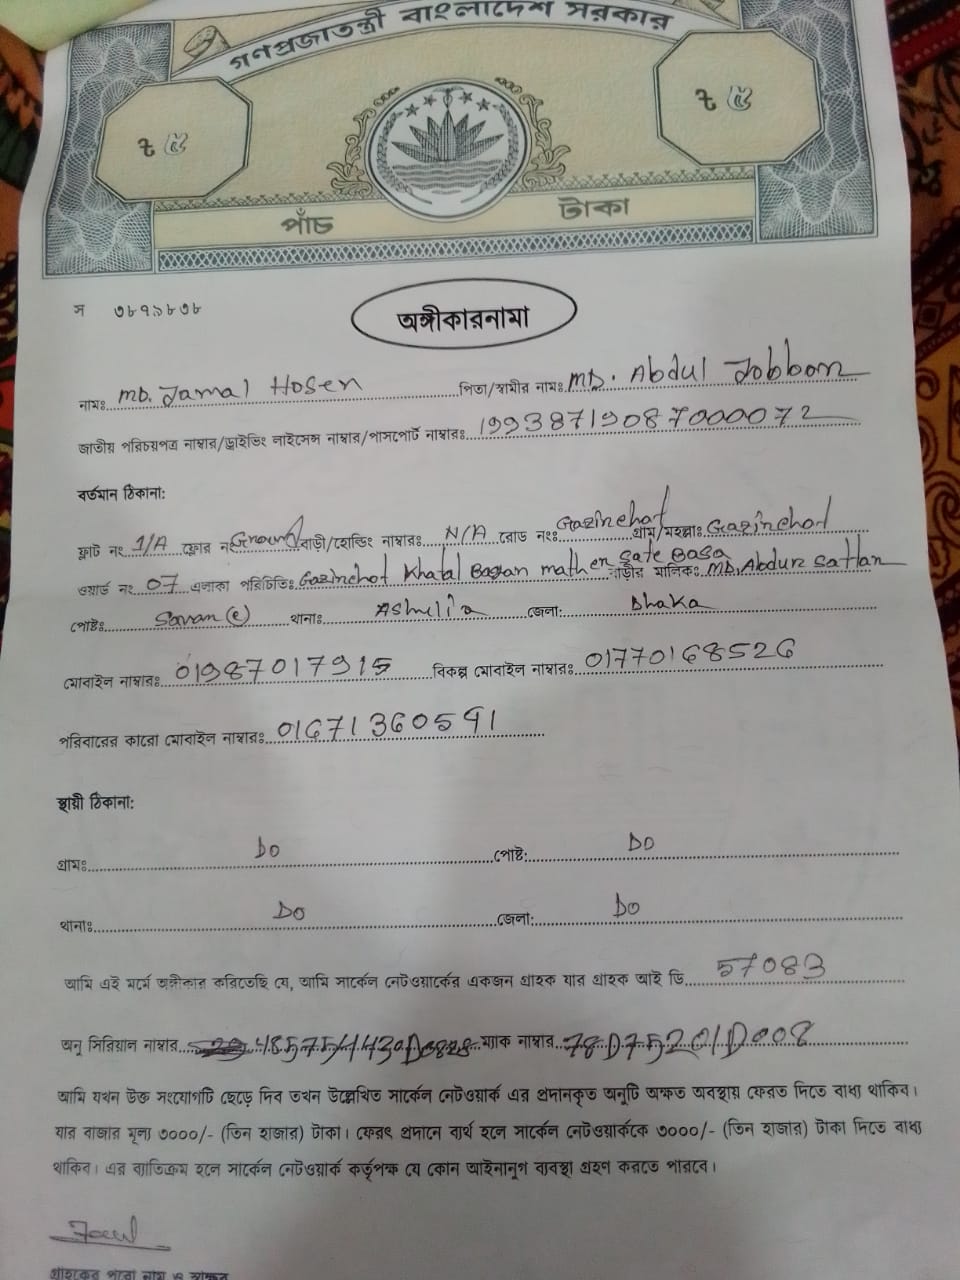 গণপ্রজাতন্ত্রী বাংলাদেশ সরকার
৳ ৫ ৳ ৫
পাঁচ টাকা
স ৩৮৭৯৮৩৮
অঙ্গীকারনামা
নামঃ MD. Jamal Hosen পিতা/স্বামীর নামঃ MD. Abdul Jobbar
জাতীয় পরিচয়পত্র নাম্বার/ড্রাইভিং লাইসেন্স নাম্বার/পাসপোর্ট নাম্বারঃ 19938719087000072
বর্তমান ঠিকানা:
ফ্লাট নং 1/A ফ্লোর নং Ground বাড়ী/হোল্ডিং নাম্বারঃ N/A রোড নংঃ Gazirchot গ্রাম/মহল্লাঃ Gazirchot
ওয়ার্ড নং 07 এলাকা পরিচিতিঃ Gazirchot Khatal Bagan mather sate Basa বাড়ীর মালিকঃ MD. Abdur Sattar
পোষ্টঃ Savar (C) থানাঃ Ashulia জেলা: Dhaka
মোবাইল নাম্বারঃ 01987017915 বিকল্প মোবাইল নাম্বারঃ 01770168526
পরিবারের কারো মোবাইল নাম্বারঃ 01671360591
স্থায়ী ঠিকানা:
গ্রামঃ DO পোষ্ট: DO
থানাঃ DO জেলা: DO
আমি এই মর্মে অঙ্গীকার করিতেছি যে, আমি সার্কেল নেটওয়ার্কের একজন গ্রাহক যার গ্রাহক আই ডি 57083
অনু সিরিয়াল নাম্বার ম্যাক নাম্বার 78D75201D008
আমি যখন উক্ত সংযোগটি ছেড়ে দিব তখন উল্লেখিত সার্কেল নেটওয়ার্ক এর প্রদানকৃত অনুটি অক্ষত অবস্থায় ফেরত দিতে বাধ্য থাকিব।
যার বাজার মূল্য ৩০০০/- (তিন হাজার) টাকা। ফেরৎ প্রদানে ব্যর্থ হলে সার্কেল নেটওয়ার্ককে ৩০০০/- (তিন হাজার) টাকা দিতে বাধ্য
থাকিব। এর ব্যাতিক্রম হলে সার্কেল নেটওয়ার্ক কর্তৃপক্ষ যে কোন আইনানুগ ব্যবস্থা গ্রহণ করতে পারবে।
গ্রাহকের পুরো নাম ও স্বাক্ষর